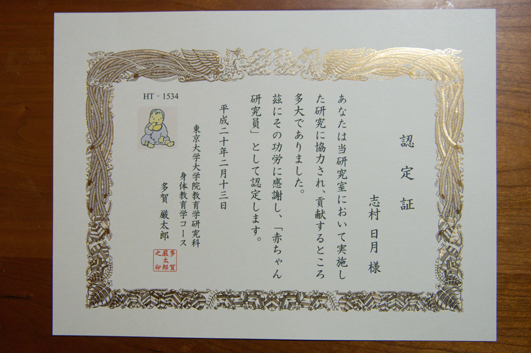 認定証
志村 日月 様
あなたは当研究室において実施し
た研究に協力され、貢献するところ
多大でありました。
茲にその功労に感謝し、「赤ちゃん
研究員」として認定します。
平成二十年二月十三日
東京大学大学院教育学研究科
身体教育学コース
多賀 厳太郎
HT - 1534
多賀
厳太郎
之印